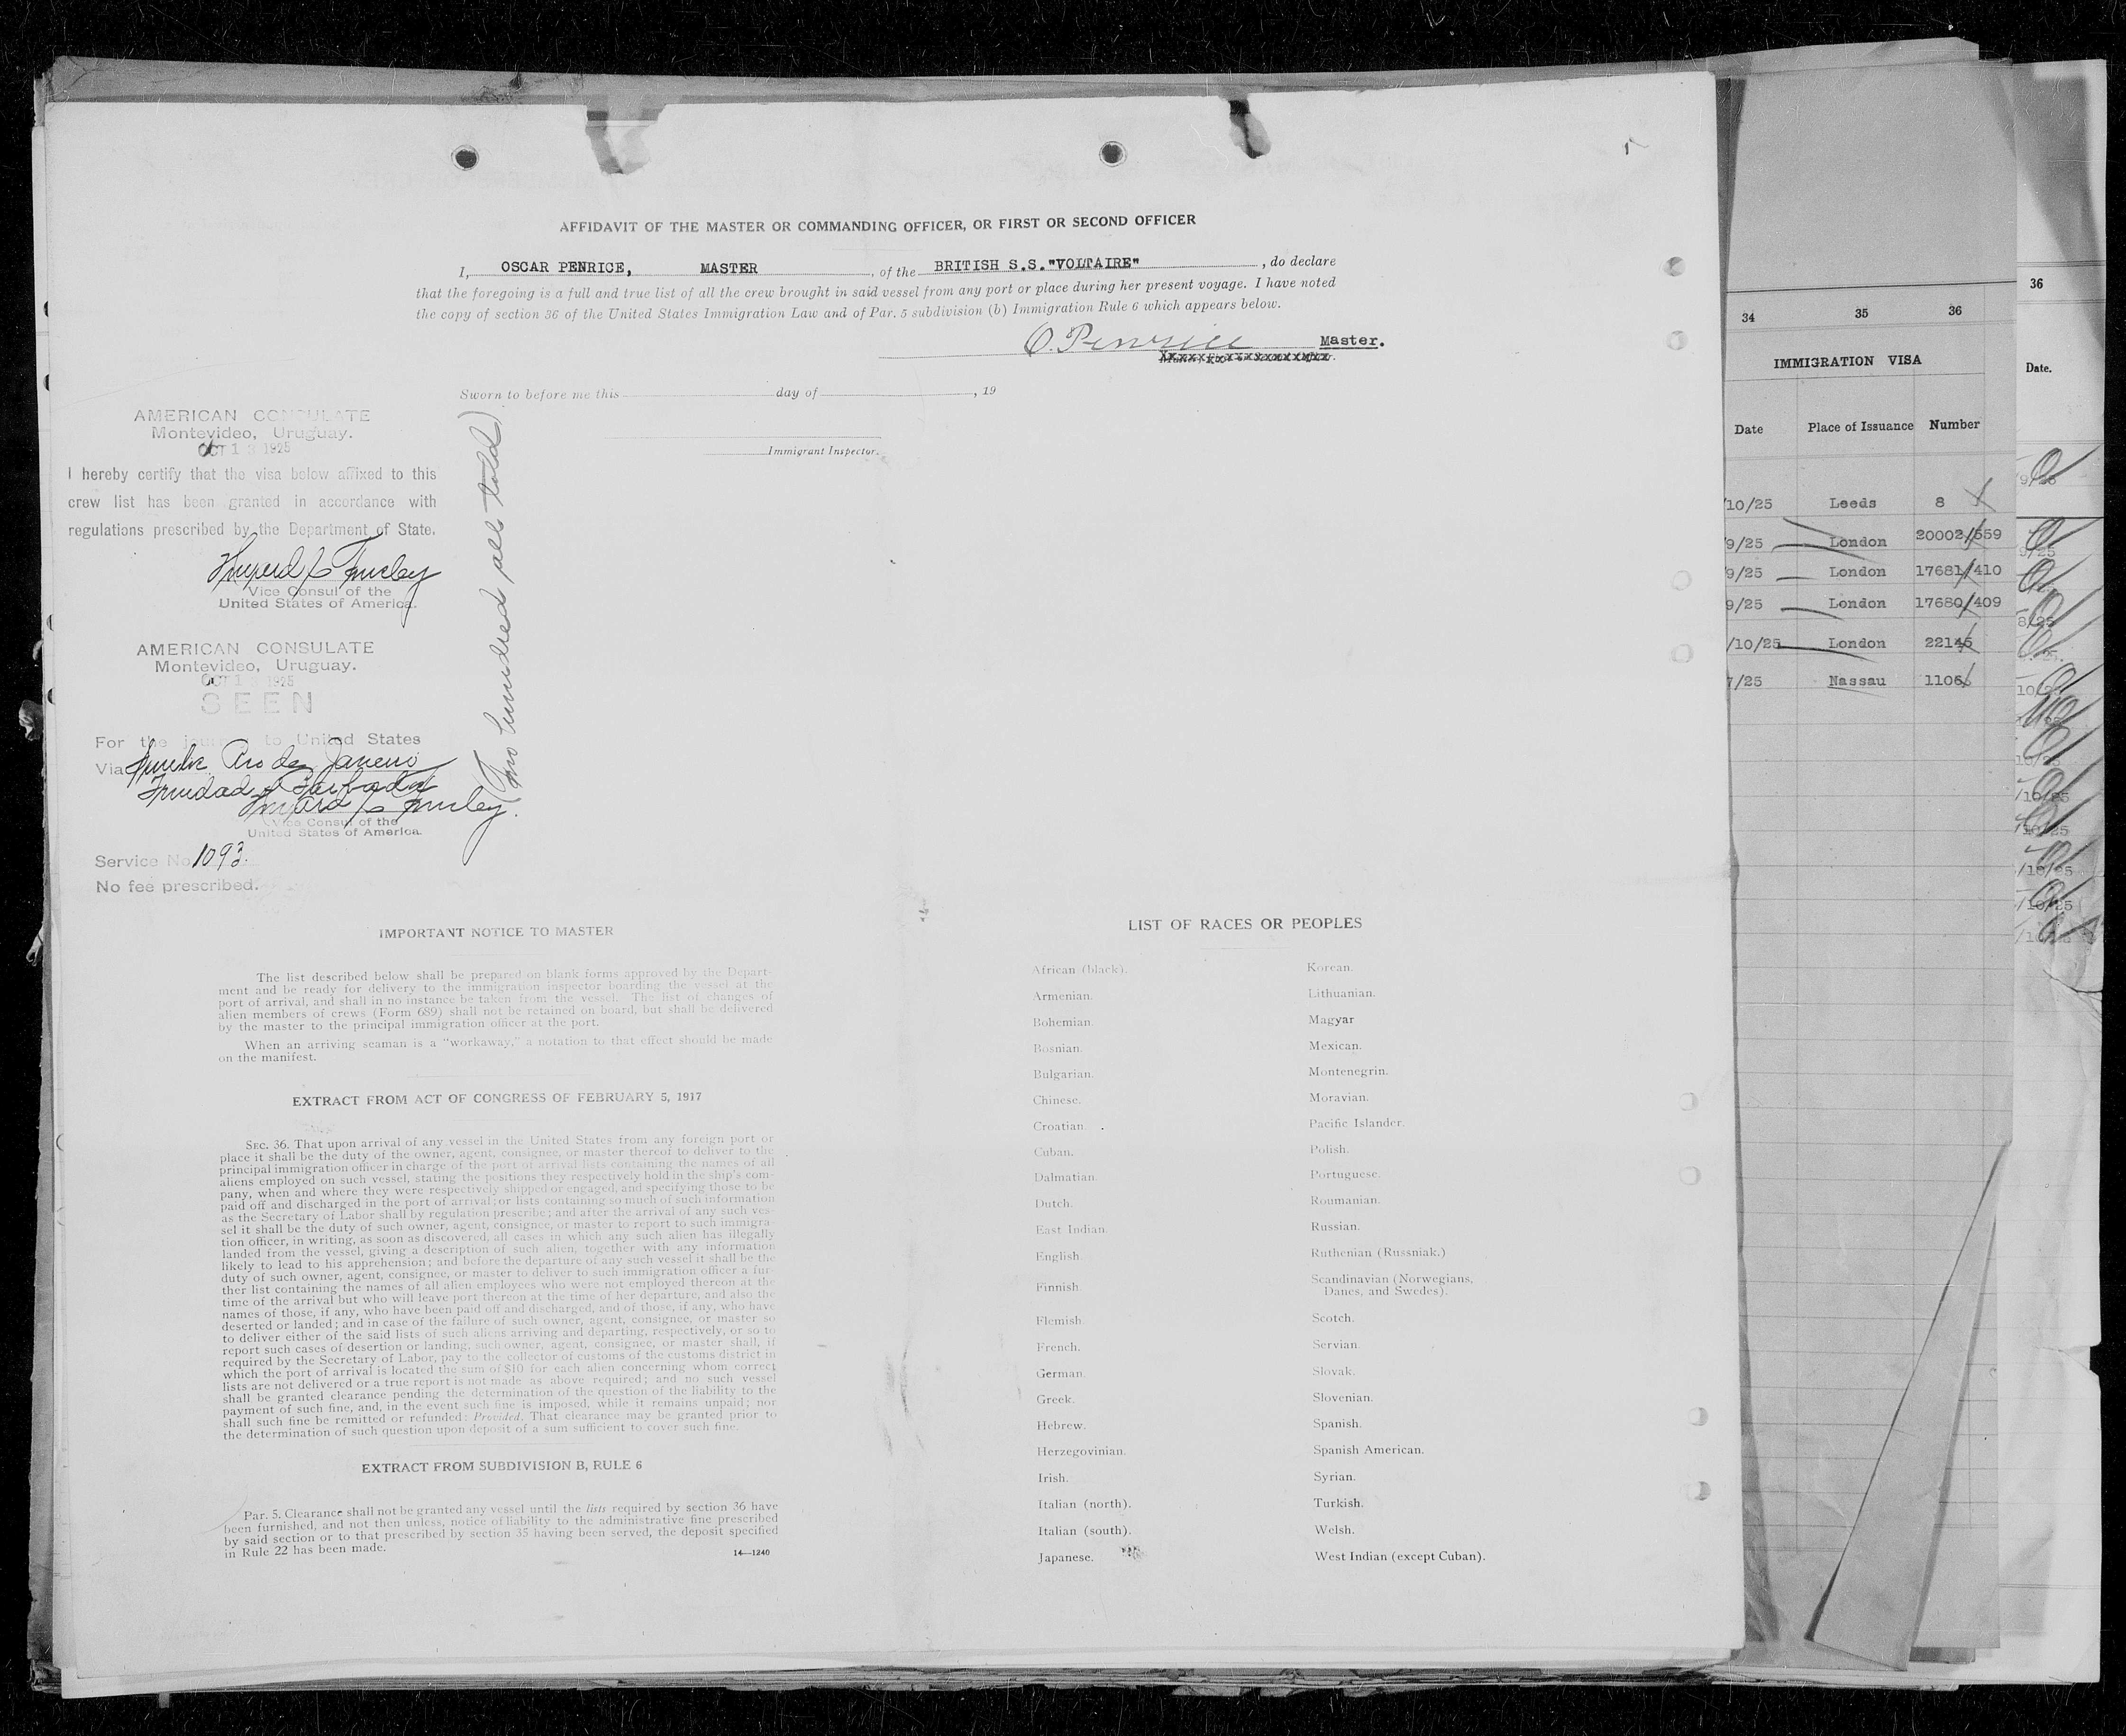 1
AFFIDAVIT OF THE MASTER OR COMMANDING OFFICER, OR FIRST OR SECOND OFFICER
I, OSCAR PENRICE, MASTER, of the BRITISH S.S."VOLTAIRE", do declare
that the foregoing is a full and true list of all the crew brought in said vessel from any port or place during her present voyage. I have noted
the copy of section 36 of the United States Immigration Law and of Par. 5 subdivision (b) Immigration Rule 6 which appears below.
O. Penrice Master.
Sworn to before me this day of , 19
Immigrant Inspector.
AMERICAN CONSULATE
Montevideo, Uruguay.
OCT 13 1925
I hereby certify that the visa below affixed to this
crew list has been granted in accordance with
regulations prescribed by the Department of State.
Vice Consul of the
United States of America.
(Two hundred all told)
AMERICAN CONSULATE
Montevideo, Uruguay.
OCT 13 1925
SEEN
For the journey to United States
Via Rio de Janeiro
Trinidad & Barbados
Vice Consul of the
United States of America.
Service No 1093.
No fee prescribed.
IMPORTANT NOTICE TO MASTER
The list described below shall be prepared on blank forms approved by the Depart-
ment and be ready for delivery to the immigration inspector boarding the vessel at the
port of arrival, and shall in no instance be taken from the vessel. The list of changes of
alien members of crews (Form 689) shall not be retained on board, but shall be delivered
by the master to the principal immigration officer at the port.
When an arriving seaman is a "workaway," a notation to that effect should be made
on the manifest.
EXTRACT FROM ACT OF CONGRESS OF FEBRUARY 5, 1917
SEC. 36. That upon arrival of any vessel in the United States from any foreign port or
place it shall be the duty of the owner, agent, consignee, or master thereof to deliver to the
principal immigration officer in charge of the port of arrival lists containing the names of all
aliens employed on such vessel, stating the positions they respectively hold in the ship's com-
pany, when and where they were respectively shipped or engaged, and specifying those to be
paid off and discharged in the port of arrival; or lists containing so much of such information
as the Secretary of Labor shall by regulation prescribe; and after the arrival of any such ves-
sel it shall be the duty of such owner, agent, consignee, or master to report to such immigra-
tion officer, in writing, as soon as discovered, all cases in which any such alien has illegally
landed from the vessel, giving a description of such alien, together with any information
likely to lead to his apprehension; and before the departure of any such vessel it shall be the
duty of such owner, agent, consignee, or master to deliver to such immigration officer a fur-
ther list containing the names of all alien employees who were not employed thereon at the
time of the arrival but who will leave port thereon at the time of her departure, and also the
names of those, if any, who have been paid off and discharged, and of those, if any, who have
deserted or landed; and in case of the failure of such owner, agent, consignee, or master so
to deliver either of the said lists of such aliens arriving and departing, respectively, or so to
report such cases of desertion or landing, such owner, agent, consignee, or master shall, if
required by the Secretary of Labor, pay to the collector of customs of the customs district in
which the port of arrival is located the sum of $10 for each alien concerning whom correct
lists are not delivered or a true report is not made as above required; and no such vessel
shall be granted clearance pending the determination of the question of the liability to the
payment of such fine, and, in the event such fine is imposed, while it remains unpaid; nor
shall such fine be remitted or refunded: Provided, That clearance may be granted prior to
the determination of such question upon deposit of a sum sufficient to cover such fine.
EXTRACT FROM SUBDIVISION B, RULE 6
Par. 5. Clearance shall not be granted any vessel until the lists required by section 36 have
been furnished, and not then unless, notice of liability to the administrative fine prescribed
by said section or to that prescribed by section 35 having been served, the deposit specified
in Rule 22 has been made.
14—1240
LIST OF RACES OR PEOPLES
African (black).
Armenian.
Bohemian.
Bosnian.
Bulgarian.
Chinese.
Croatian.
Cuban.
Dalmatian.
Dutch.
East Indian.
English.
Finnish.
Flemish.
French.
German.
Greek.
Hebrew.
Herzegovinian.
Irish.
Italian (north).
Italian (south).
Japanese.
Korean.
Lithuanian.
Magyar
Mexican.
Montenegrin.
Moravian.
Pacific Islander.
Polish.
Portuguese.
Roumanian.
Russian.
Ruthenian (Russniak.)
Scandinavian (Norwegians,
Danes, and Swedes).
Scotch.
Servian.
Slovak.
Slovenian.
Spanish.
Spanish American.
Syrian.
Turkish.
Welsh.
West Indian (except Cuban).
34 35 36
IMMIGRATION VISA
Date Place of Issuance Number
/10/25 Leeds 8
9/25 London 20002/559
9/25 London 17681/410
9/25 London 17680/409
/10/25 London 22145
7/25 Nassau 1106
36
Date.
/10/25
/10/25
/10/25